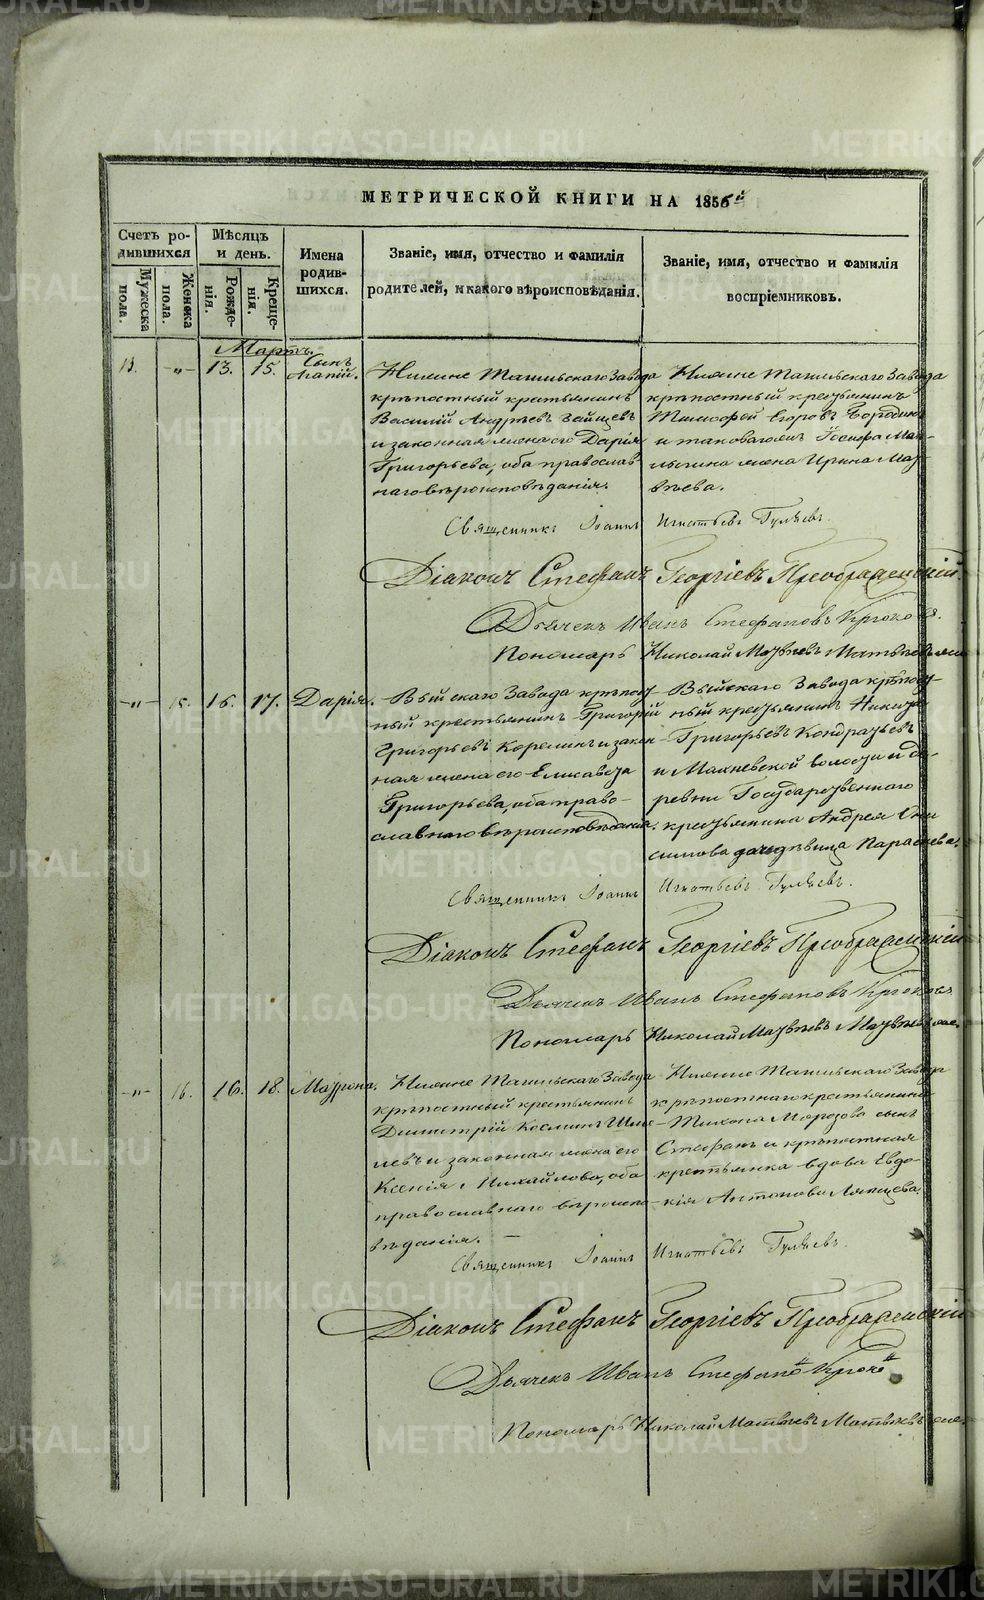 МЕТРИЧЕСКОЙ КНИГИ НА 1856й
Счетъ ро-
дившихся
Мужеска
пола.
Женска
пола.
Мѣсяцъ
и день.
Рожде-
нія.
Креще-
нія.
Имена
родив-
шихся.
Званіе, имя, отчество и фамилія
родителей, и какого вѣроисповѣданія.
Званіе, имя, отчество и фамилія
воспріемниковъ.
Мартъ.
13. -„- 13. 15. Сынъ
Нижне Тагильскаго Завода
крѣпостный крестьянинъ
Василій Андрѣевъ Зайцевъ
и законная жена его Дарія
Григорьева, оба православ
наго вѣроисповѣданія.
Нижне Тагильскаго Завода
крѣпостный крестьянинъ
Тимофей Егоровъ Бородинъ
и таковагожъ Іосифа Мал-
жена Ирина Мат-
вѣева.
Священникъ Іоаннъ Игнатьевъ Гуляевъ.
Діаконъ Стефанъ Георгіевъ Преображенскій.
Дьячекъ Иванъ Стефановъ Крюковъ.
Пономарь Николай Матвѣевъ
-„- 15. 16. 17. Дарія.
Выйскаго Завода крѣпост
ный крестьянинъ Григорій
Григорьевъ Корелинъ и закон
ная жена его Елисавета
Григорьева, оба право-
славнаго вѣроисповѣданія.
Выйскаго Завода крѣпост
ный крестьянинъ Никита
Григорьевъ Кондратьевъ
и Махневской волости и де-
ревни Государственнаго
крестьянина Андрея Они
симова дочь дѣвица Параскева.
Священникъ Іоаннъ Игнатьевъ Гуляевъ.
Діаконъ Стефанъ Георгіевъ Преображенскій
Дьячекъ Иванъ Стефановъ Крюковъ
Пономарь Николай Матвѣевъ
-„- 16. 16. 18. Матрона.
Нижне Тагильскаго Завода
крѣпостный крестьянинъ
Димитрій Косминъ Шми-
левъ и законная жена его
Ксенія Михайлова, оба
православнаго вѣроиспо-
вѣданія.
Нижне Тагильскаго Завода
крѣпостнаго крестьянина
Тихона Морозова сынъ
Стефанъ и крѣпостная
крестьянка вдова Евдо-
кія Антонова Ляпцева.
Священникъ Іоаннъ Игнатьевъ Гуляевъ.
Діаконъ Стефанъ Георгіевъ Преображенскій
Дьячекъ Иванъ Стефановъ Крюковъ
Пономарь Николай Матвѣевъ
METRIKI.GASO-URAL.RU